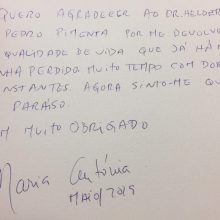 QUERO AGRADECER AO DR. HELDER
PEDRO PIMENTA POR ME DEVOLVE
QUALIDADE DE VIDA QUE JÁ HÁ
HA PERDIDA MUITO TEMPO COM DOR
NSTANTES. AGORA SINTO-ME QU
PARAÍSO.
M MUITO OBRIGADO
Maria António
MAIO/2019